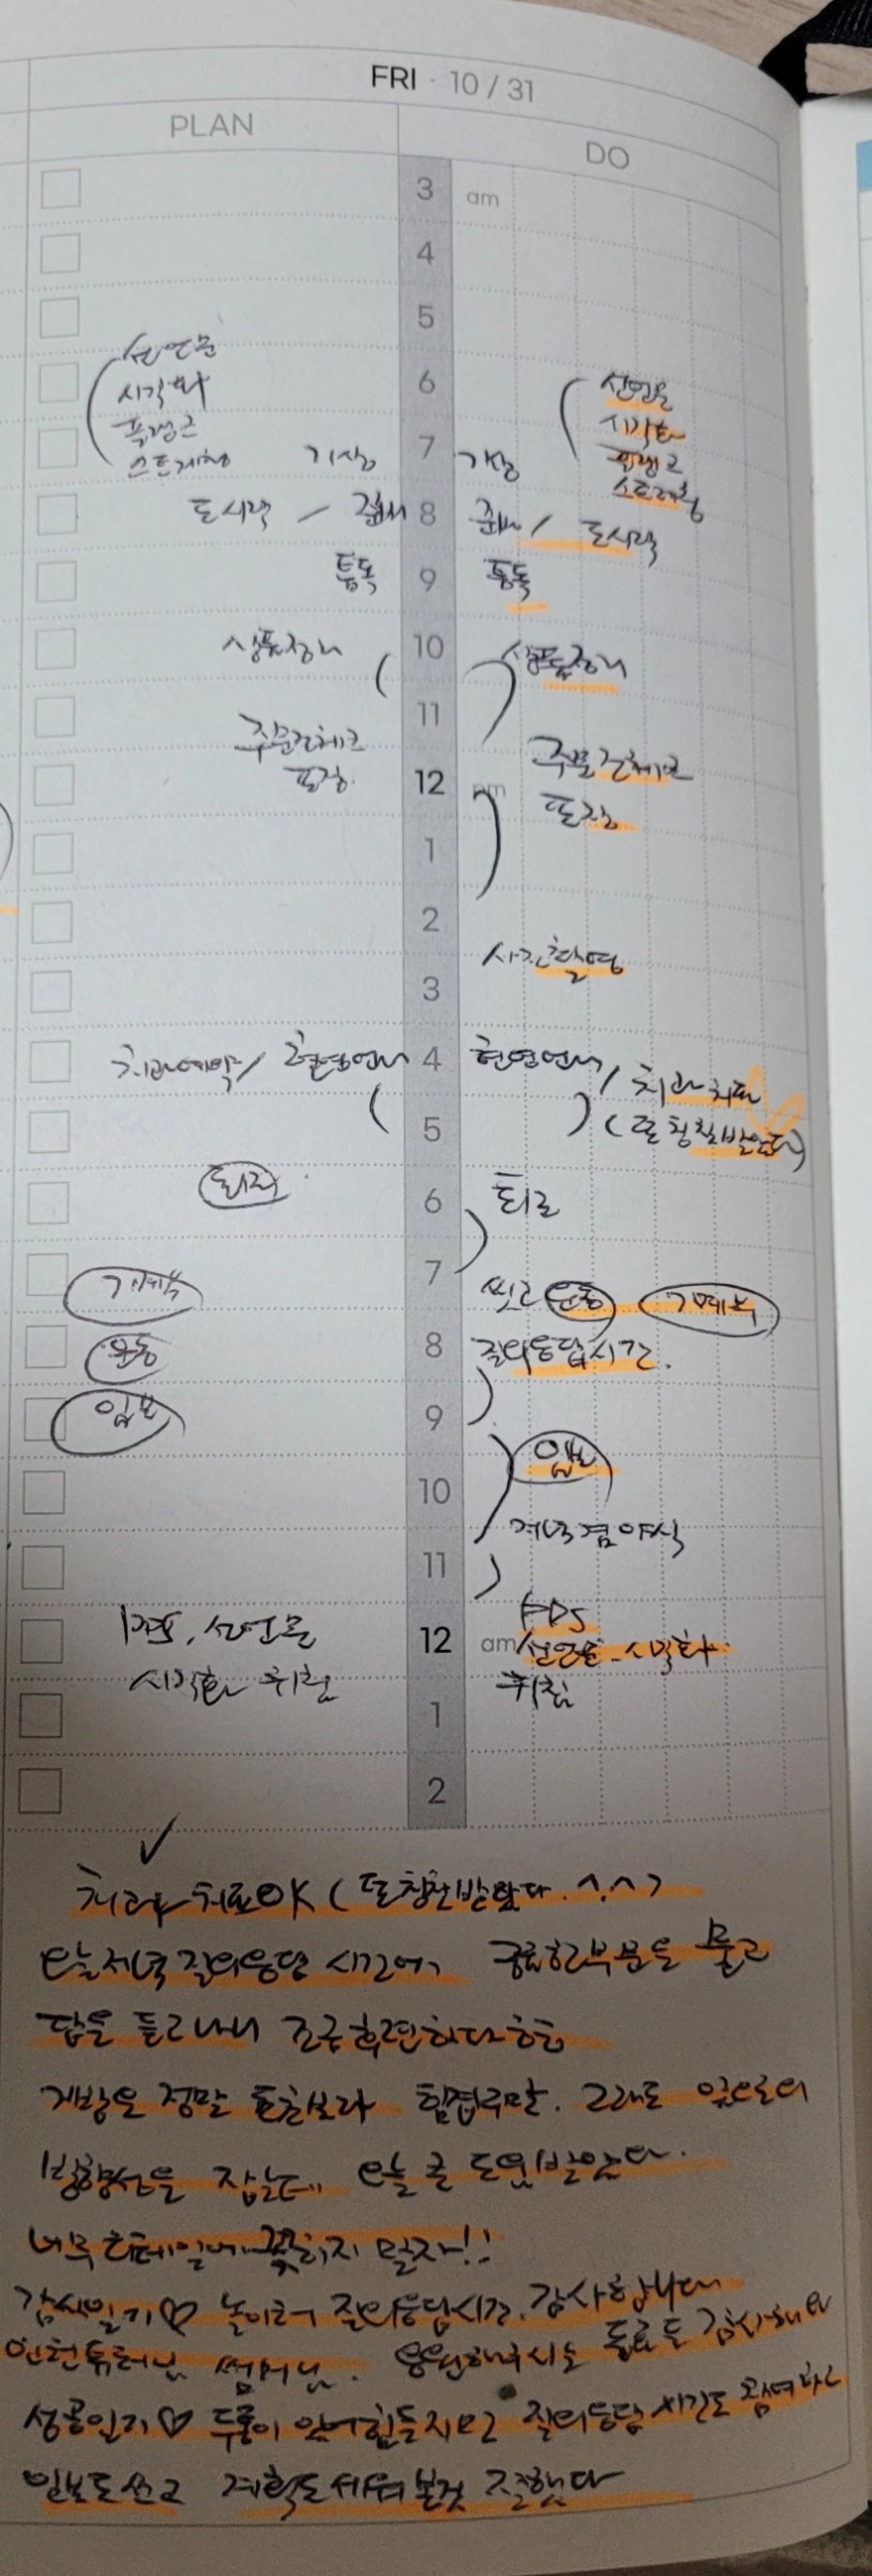 FRI · 10 / 31
PLAN
DO
3 am
4
5
선언문
시각화
6
선언문
시각화
스트레칭
기상
7
기상
스트레칭
도시락 / 준비
8
준비 / 도시락
통독
9
통독
상품정리
10
상품정리
11
주문건체크
포장
12 pm
주문건체크
포장
1
2
사진촬영
3
치과예약 /
4
/ 치과치료
5
(또 칭찬받았다)
퇴근
6
퇴근
7
가계부
씻고 운동 가계부
운동
8
질의응답시간.
일보
9
일보
10
저녁겸야식
11
선언문
12 am
PDS
선언문 시각화
시각화 취침
취침
1
2
치과 치료OK (또칭찬받았다. ^.^)
오늘저녁 질의응답 시간에 궁금한부분을 물고
답을 듣고나니 조금후련하다
정말 힘겹구만. 그래도 앞으로의
방향선을 잡는데 오늘 큰 도움받았다.
너무 디테일에 꽂히지 말자!!
감사일기♡ 질의응답시간. 감사합니다
인천튜터님 썸머님. 응원해주시는 동료들 감사해요
성공일기♡ 두통이 있어힘들지만 질의응답 시간도 참여하고
일보도쓰고 계획도세워본것 잘했다